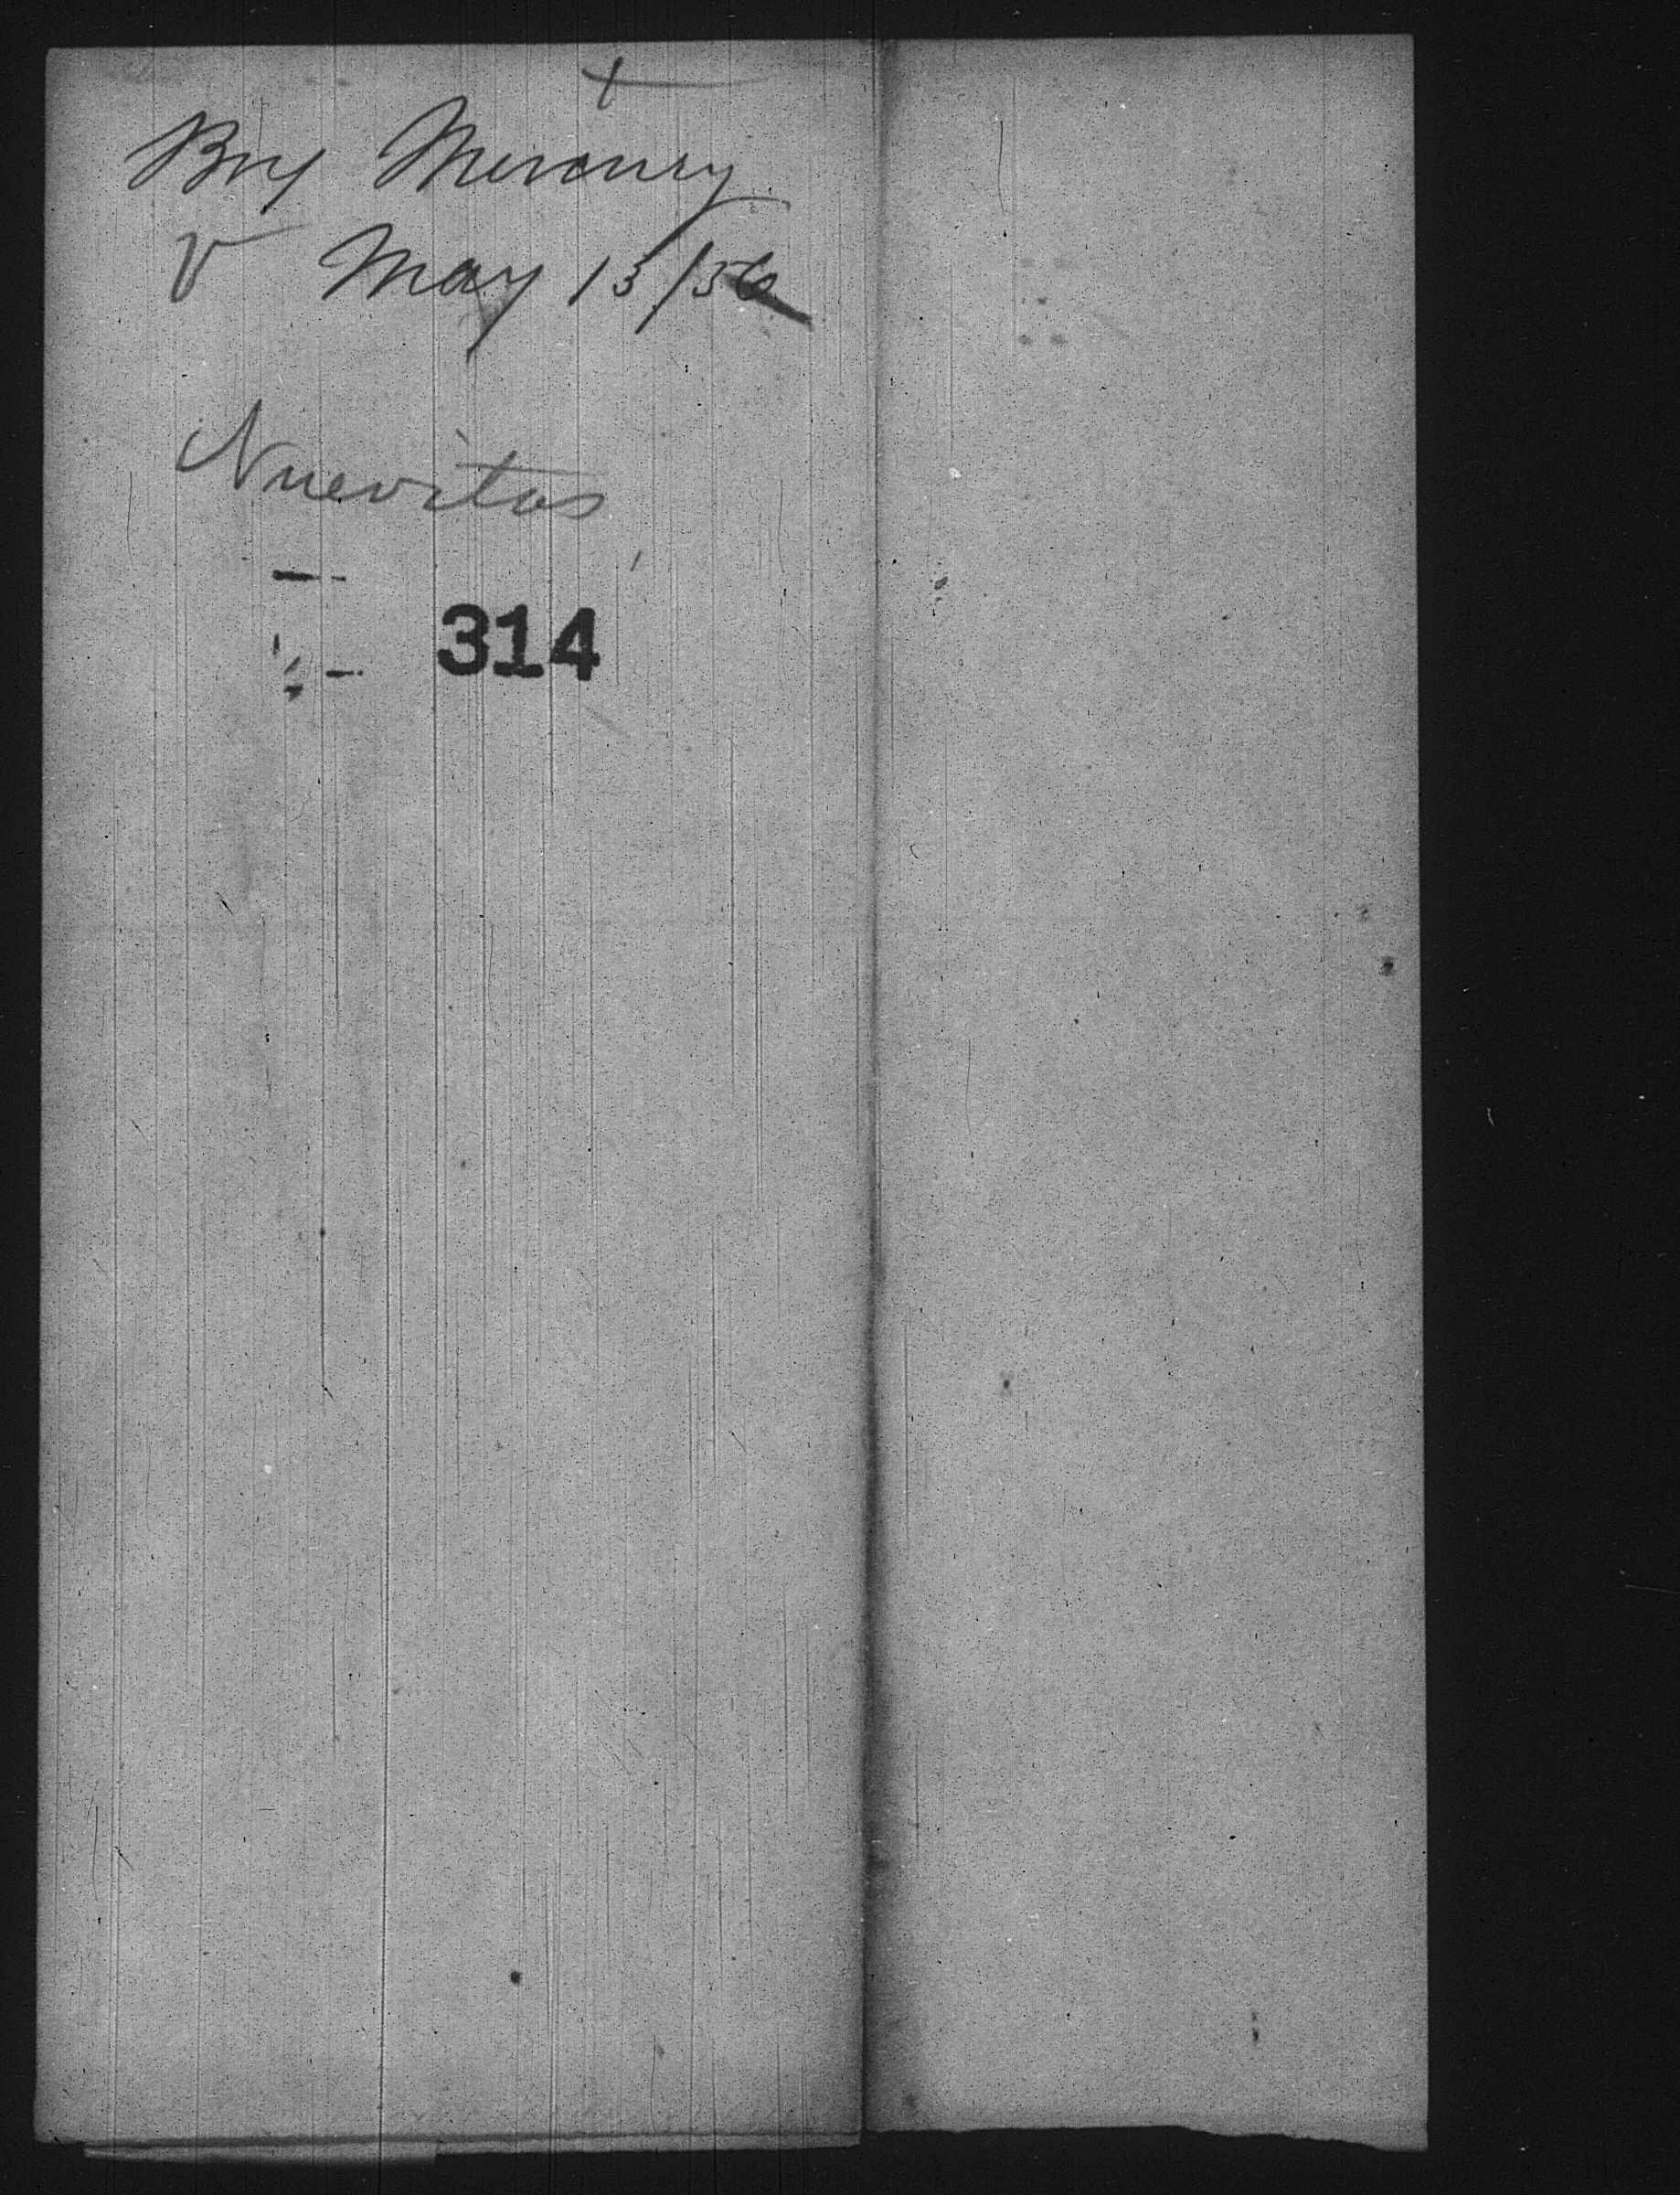 Brig Mercury
V May 13/56
Nuevitas
314